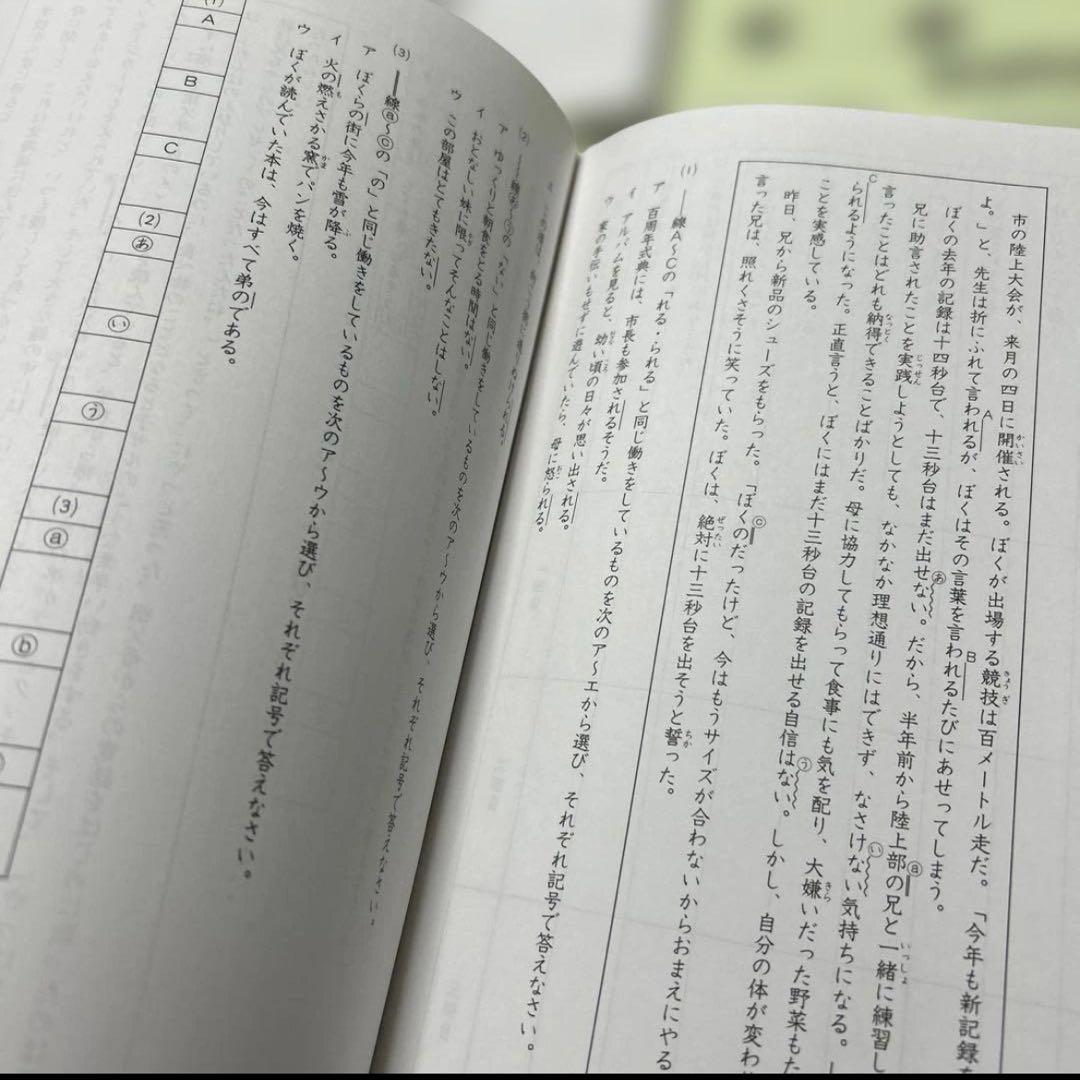 市の陸上大会が、来月の四日に開催される。ぼくが出場する競技は百メートル走だ。「今年も新記録を
よ。」と、先生は折にふれて言われるが、ぼくはその言葉を言われるたびにあせってしまう。
ぼくの去年の記録は十四秒台で、十三秒台はまだ出せない。だから、半年前から陸上部の兄と一緒に練習し
兄に助言されたことを実践しようとしても、なかなか理想通りにはできず、なさけない気持ちになる。
言ったことはどれも納得できることばかりだ。母に協力してもらって食事にも気を配り、大嫌いだった野菜もた
られるようになった。正直言うと、ぼくにはまだ十三秒台の記録を出せる自信はない。しかし、自分の体が変わ
ことを実感している。
昨日、兄から新品のシューズをもらった。「ぼくのだったけど、今はもうサイズが合わないからおまえにやる
言った兄は、照れくさそうに笑っていた。ぼくは、絶対に十三秒台を出そうと誓った。
(1) ――線A～Cの「れる・られる」と同じ働きをしているものを次のア～エから選び、それぞれ記号で答えなさい。
ア 百周年式典には、市長も参加されるそうだ。
イ アルバムを見ると、幼い頃の日々が思い出される。
ウ 家の手伝いもせずに遊んでいたら、母に怒られる。
(2) 線あ～うの「ない」と同じ働きをしているものを次のア～ウから選び、それぞれ記号で答えなさい。
ア ゆっくりと朝食をとる時間はない。
イ おとなしい妹に限ってそんなことはしない。
ウ この部屋はとてもきたない。
(3) ――線ⓐ～ⓒの「の」と同じ働きをしているものを次のア～ウから選び、それぞれ記号で答えなさい。
ア ぼくらの街に今年も雪が降る。
イ 火の燃えさかる窯でパンを焼く。
ウ ぼくが読んでいた本は、今はすべて弟のである。
(1) A B C (2) あ い う (3) ⓐ ⓑ